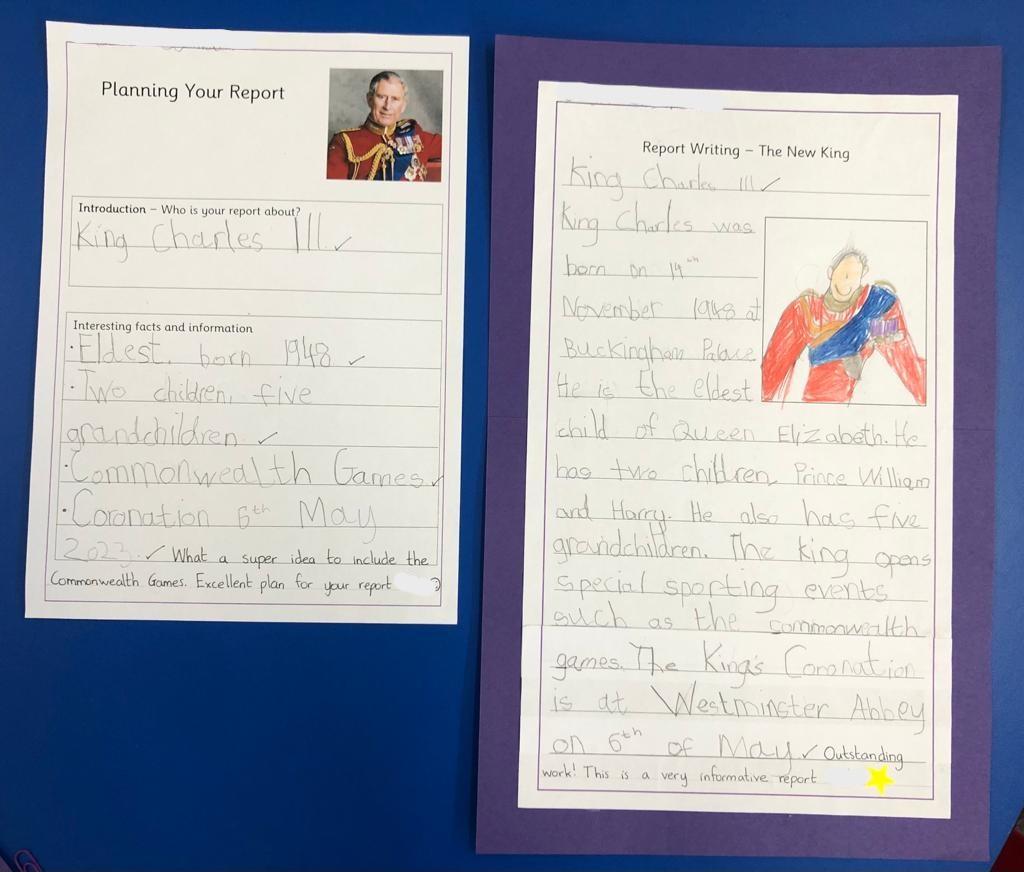 Planning Your Report
Introduction – Who is your report about?
King Charles III. ✓
Interesting facts and information
• Eldest. born 1948 ✓
• Two children, five
grandchildren ✓
• Commonwealth Games ✓
• Coronation 6th May
2023. ✓ What a super idea to include the
Commonwealth Games. Excellent plan for your report
Report Writing – The New King
King Charles III ✓
King Charles was
born on 14th
November 1948 at
Buckingham Palace.
He is the eldest
child of Queen Elizabeth. He
has two children, Prince William
and Harry. He also has five
grandchildren. The King opens
special sporting events
such as the commonwealth
games. The King's Coronation
is at Westminster Abbey
on 6th of May. ✓ Outstanding
work! This is a very informative report